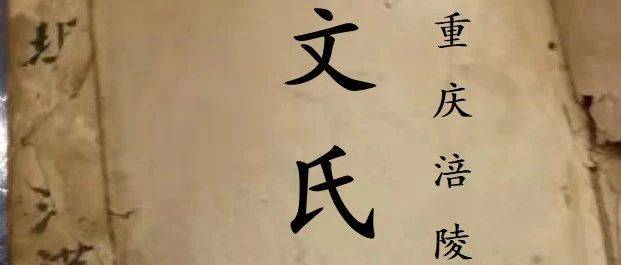 重庆涪陵
文氏